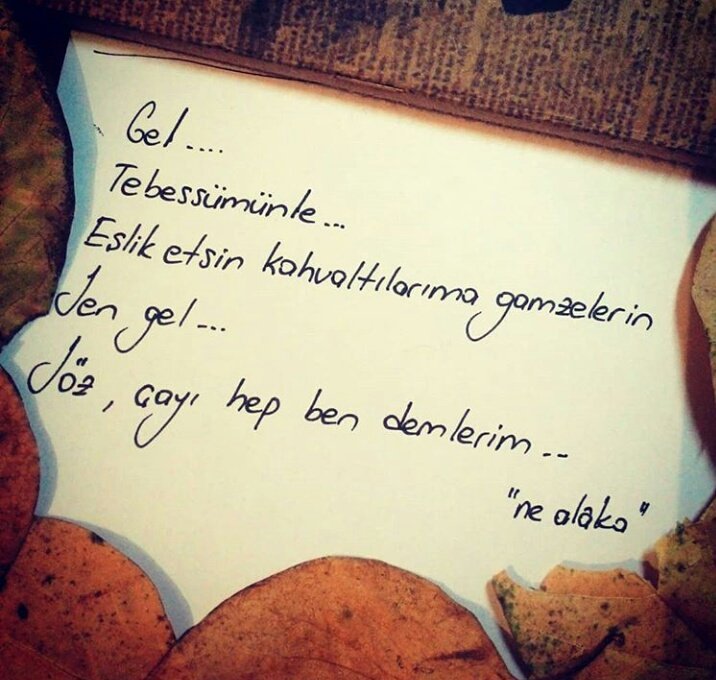 Gel....
Tebessümünle...
Eşlik etsin kahvaltılarıma gamzelerin
Sen gel...
Söz, çayı hep ben demlerim..
"ne alâka"